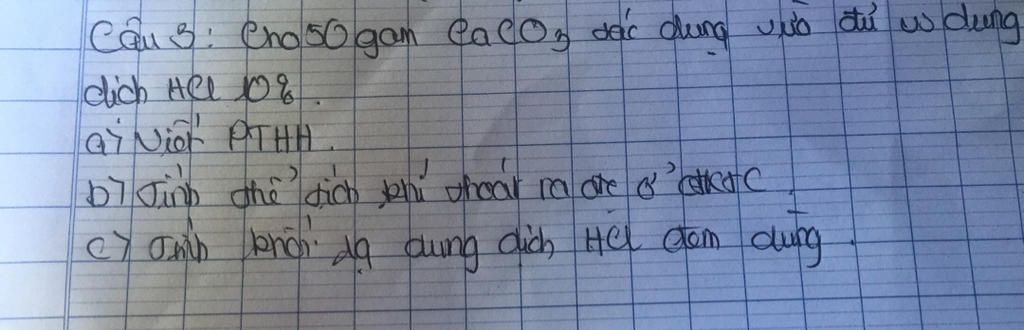 Câu 3: Cho 50 gam CaCO3 tác dụng vừa đủ với dung
dịch HCl 10%.
a) Viết PTHH.
b) Tính thể tích khí thoát ra ở đktc
c) Tính khối lg dung dịch HCl đem dùng.